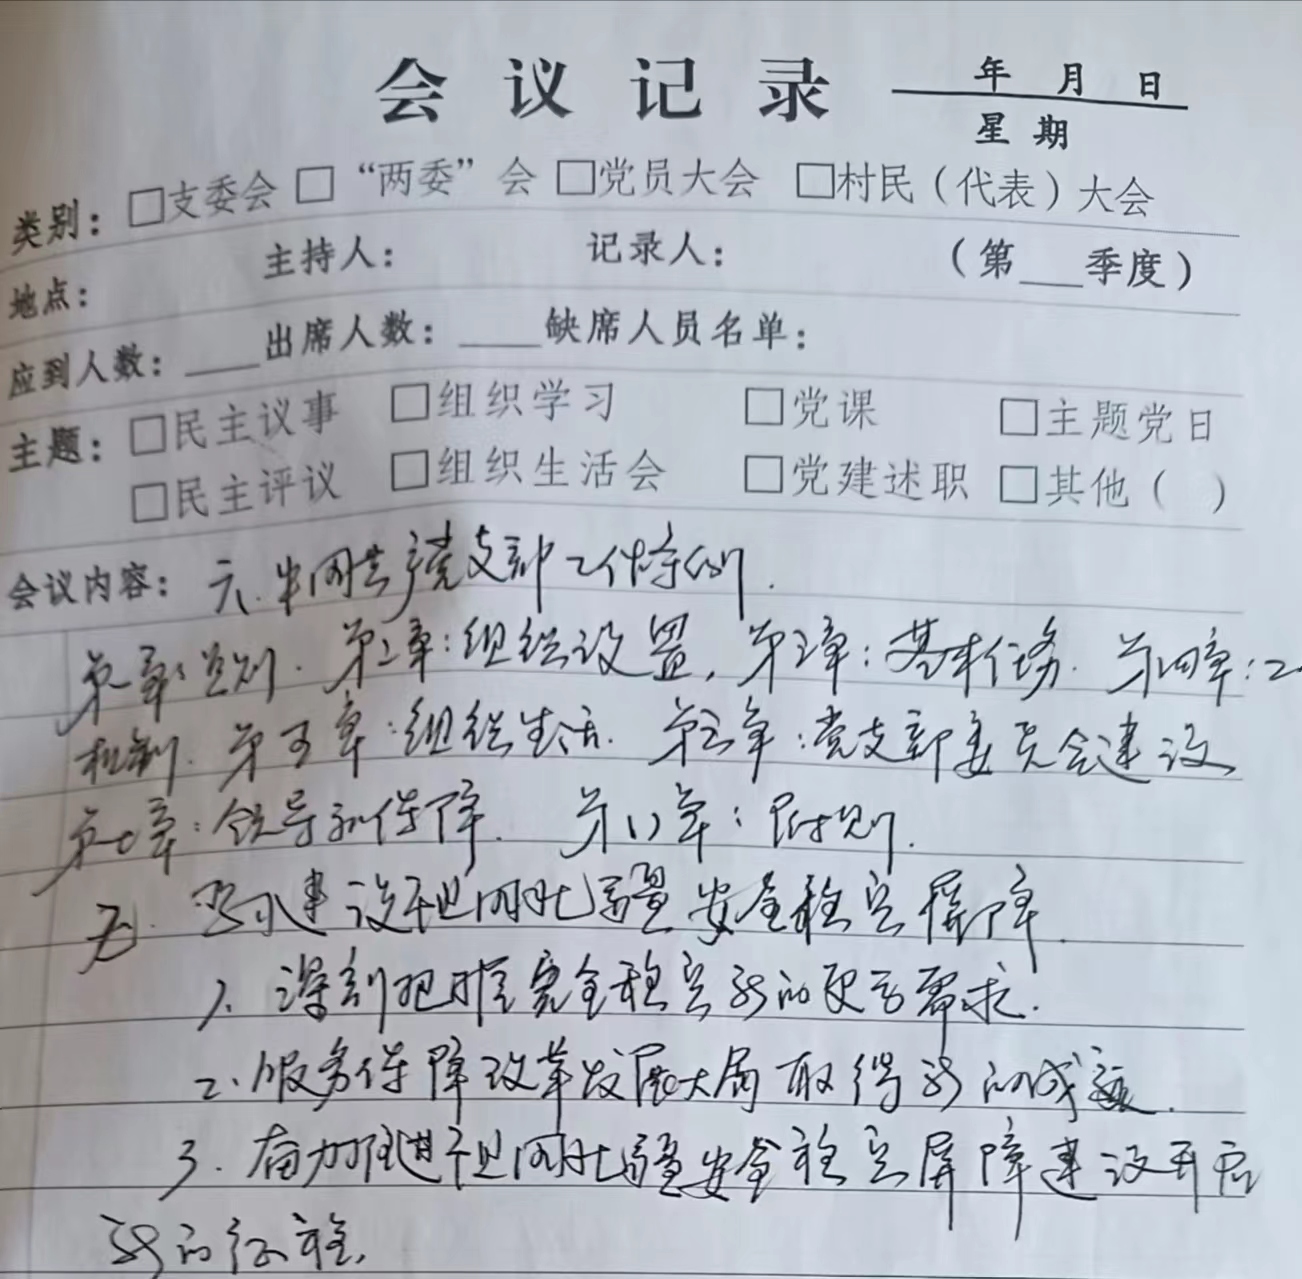 会议记录 年 月 日
星期
类别：□支委会 □“两委”会 □党员大会 □村民（代表）大会
地点： 主持人： 记录人： （第___季度）
应到人数：___出席人数：___缺席人员名单：
主题：□民主议事 □组织学习 □党课 □主题党日
□民主评议 □组织生活会 □党建述职 □其他（ ）
会议内容：六.中国共产党支部工作特例.
第一章：总则.第二章：组织设置，第三章：基本任务.第四章：工
机制.第五章：组织生活.第六章：党支部委员会建设
第七章：领导和保障.第八章：附则.
建设祖国北疆安全稳定屏障.
1、深刻把握安全稳定新的更高需求.
2.服务保障改革发展大局取得新的成效.
3.奋力促进祖国北疆安全稳定屏障建设开启
新的征程.